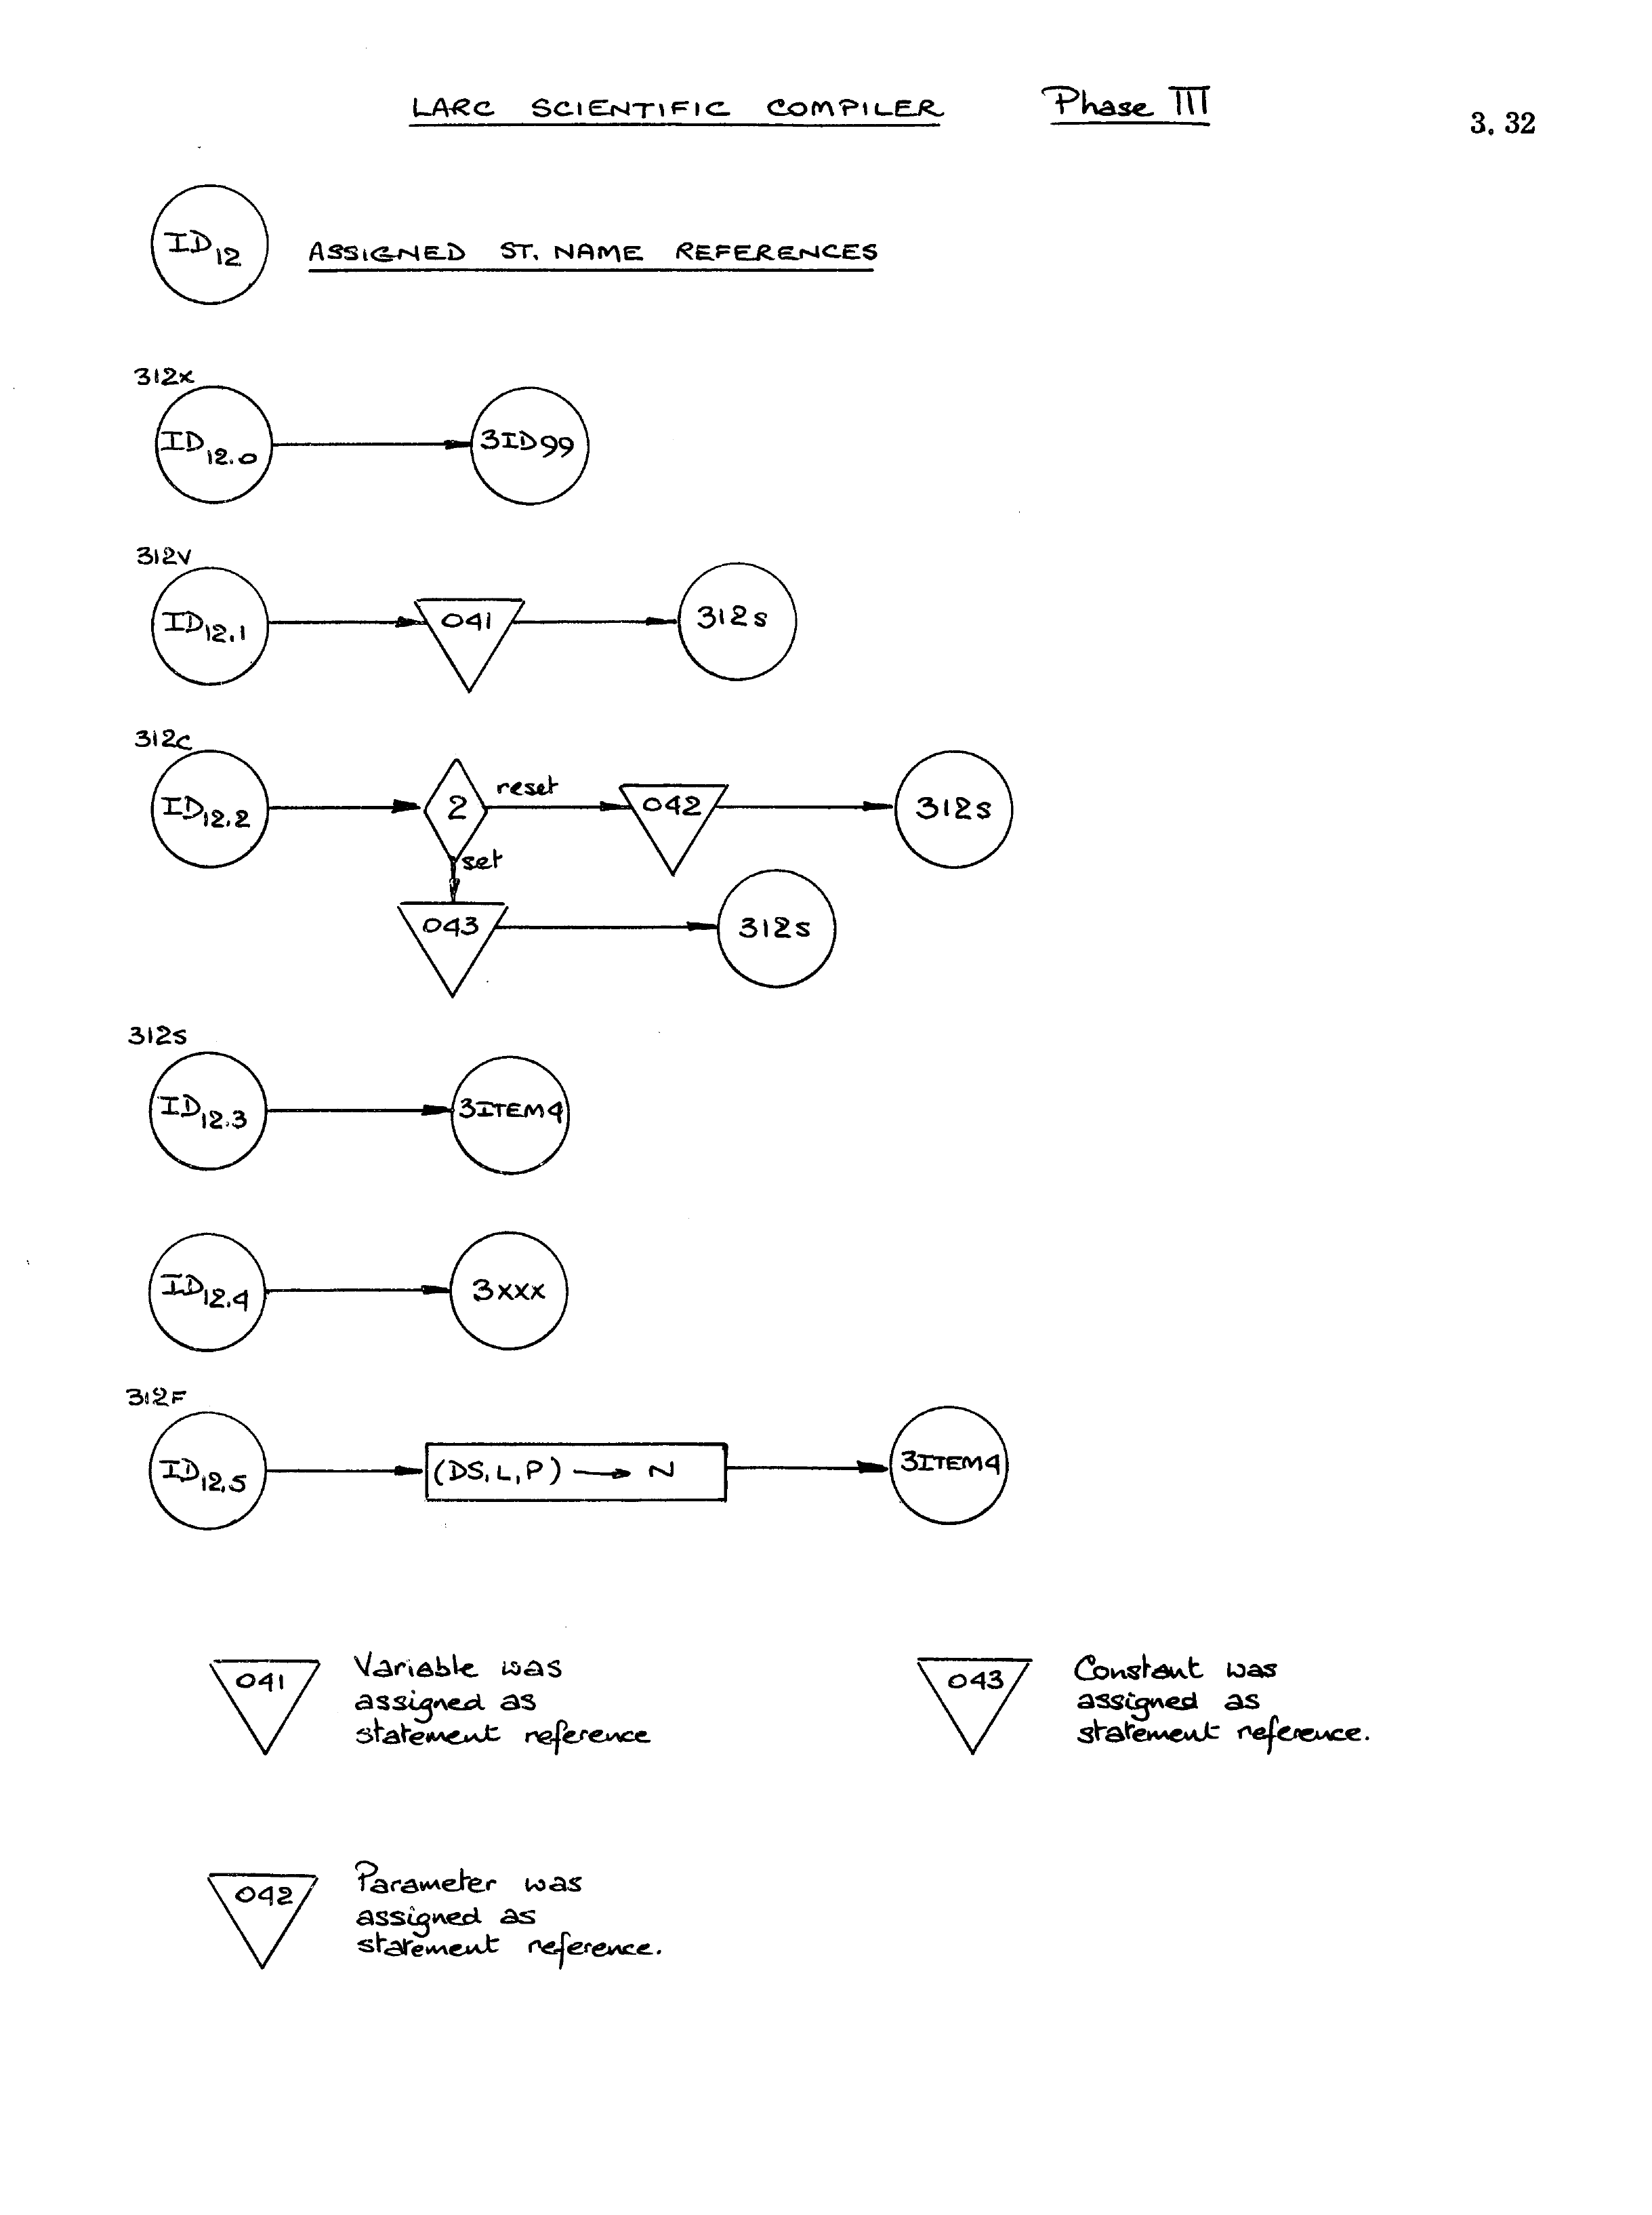 LARC SCIENTIFIC COMPILER Phase III
3.32
ID12 ASSIGNED ST. NAME REFERENCES
312x
ID12.0 3ID99
312V
ID12.1 041 312s
312c
ID12.2 2 reset 042 312s
set
043 312s
312s
ID12.3 3ITEM4
ID12.4 3xxx
312F
ID12.5 (DS,L,P) → N 3ITEM4
041 Variable was
assigned as
statement reference
043 Constant was
assigned as
statement reference.
042 Parameter was
assigned as
statement reference.